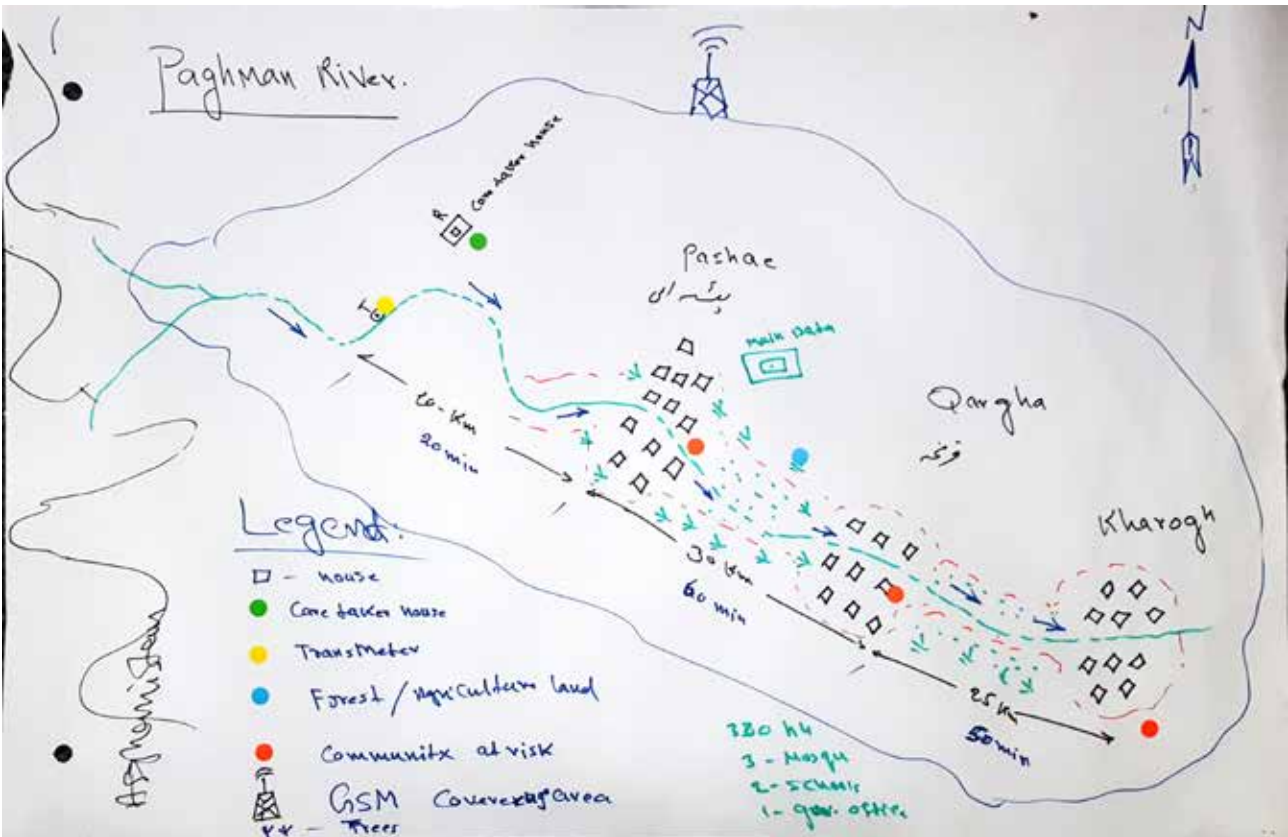 N
Paghman River.
Care taker house
R
Pashae
پشه ای
Main Data
T
Qargha
قرغه
Kharogh
Km
20 min
30 Km
60 min
25 Km
50 min
Legend:
- house
Care taker house
TransMeter
Forest / Agriculture land
Community at risk
GSM area
- Trees
Afghanistan
380
3 - Mosqu
2 -
1 - gov. office
S